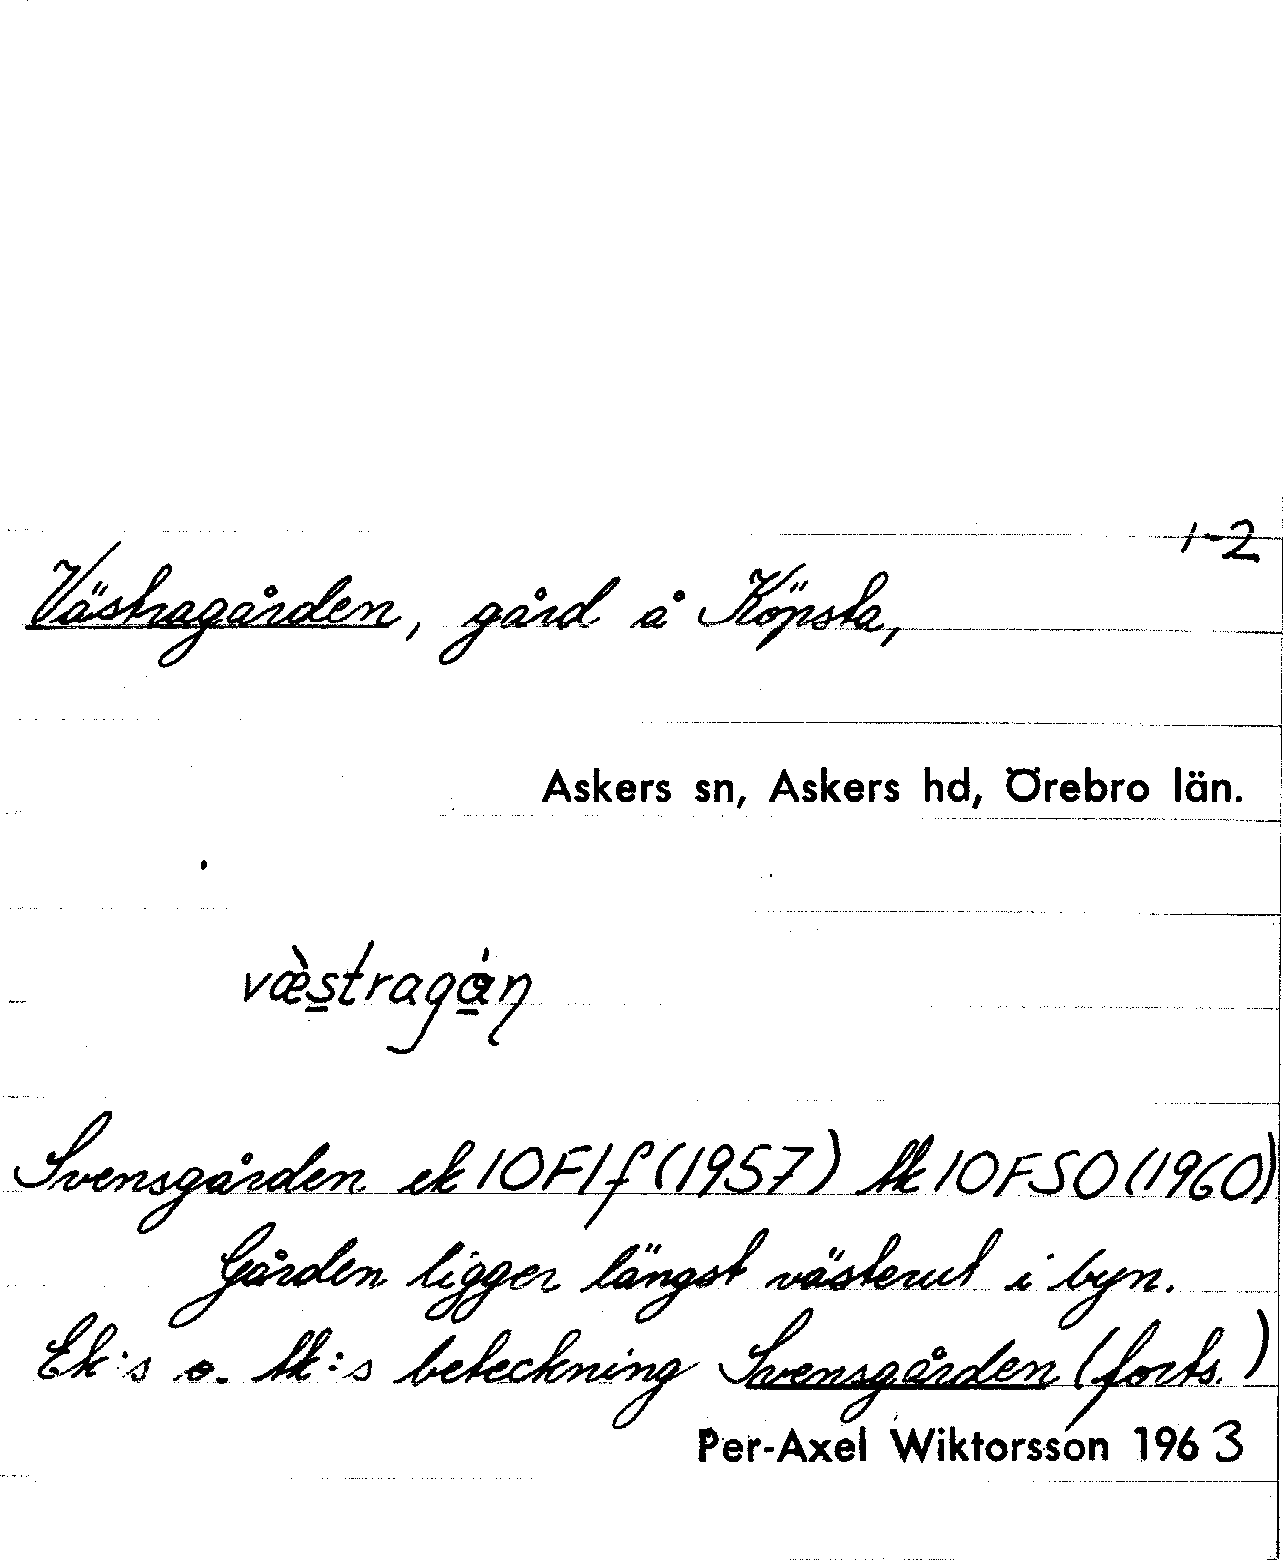 1-2
Västragården, gård å Köpsta,
Askers sn, Askers hd, Örebro län.
væ̀stragȧn
Svensgården ek 10F1f (1957) tk 10FSO (1960)
Gården ligger längst västerut i byn.
Ek:s o. tk:s beteckning Svensgården (forts.)
Per-Axel Wiktorsson 1963